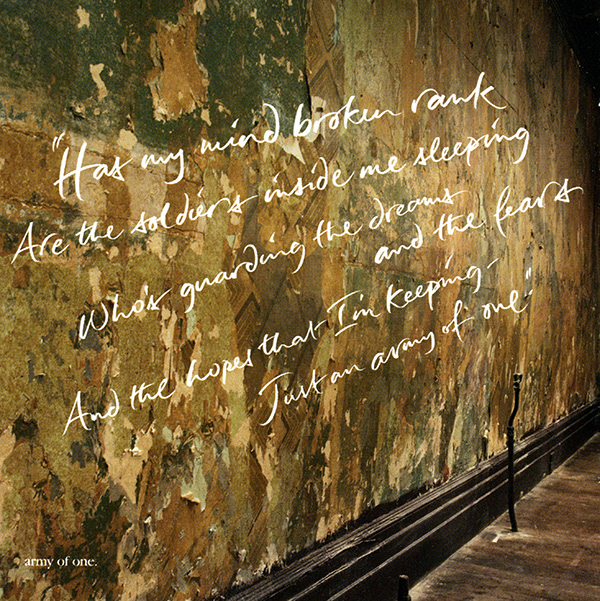 "Has my mind broken rank
Are the soldiers inside me sleeping
Who's guarding the dreams
and the fears
And the hopes that I'm keeping –
Just an army of one."
army of one.